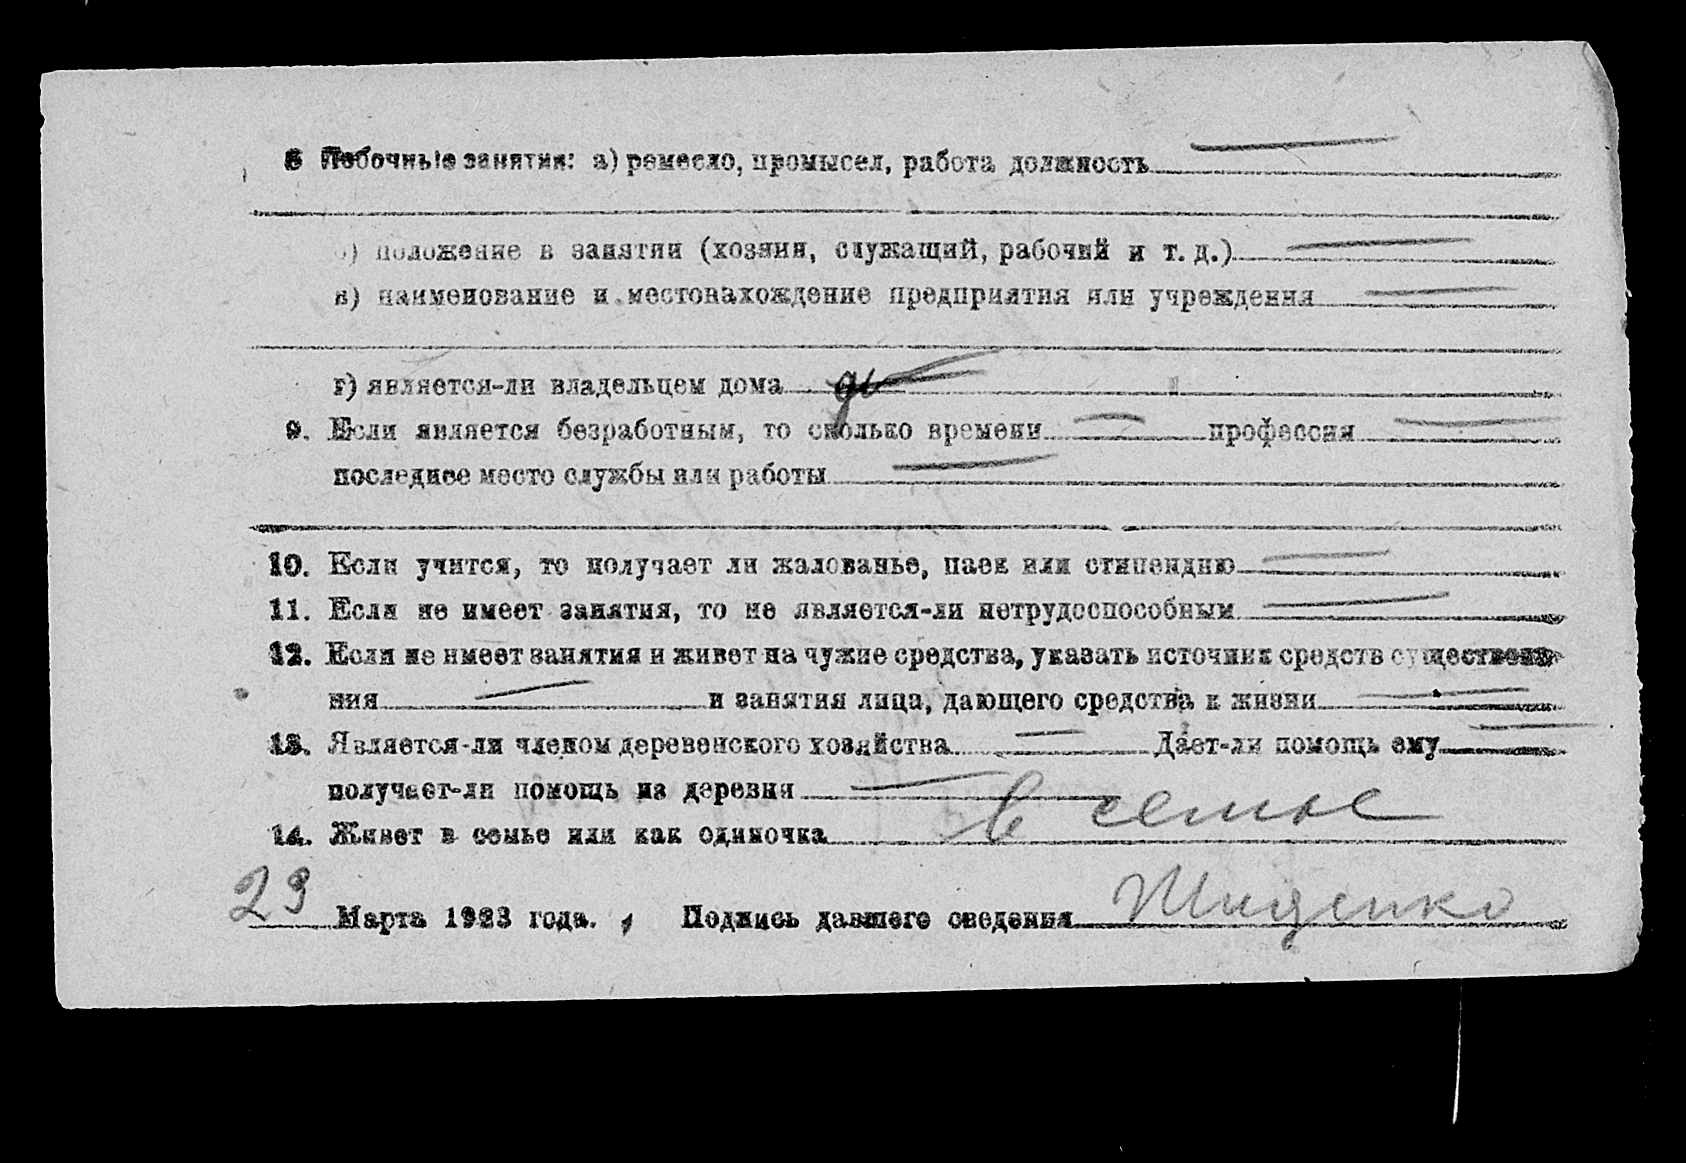 8 Побочные занятия: а) ремесло, промысел, работа должность
б) положение в занятии (хозяин, служащий, рабочий и т. д.)
в) наименование и местонахождение предприятия или учреждения
г) является-ли владельцем дома да
9. Если является безработным, то сколько времени профессия
последнее место службы или работы
10. Если учится, то получает ли жалованье, паек или стипендию
11. Если не имеет занятия, то не является-ли нетрудоспособным
12. Если не имеет занятия и живет на чужие средства, указать источник средств существова-
ния и занятия лица, дающего средства к жизни
13. Является-ли членом деревенского хозяйства Дает-ли помощь ему
получает-ли помощь из деревни
14. Живет в семье или как одиночка в семье
23 Марта 1923 года. Подпись давшего сведения